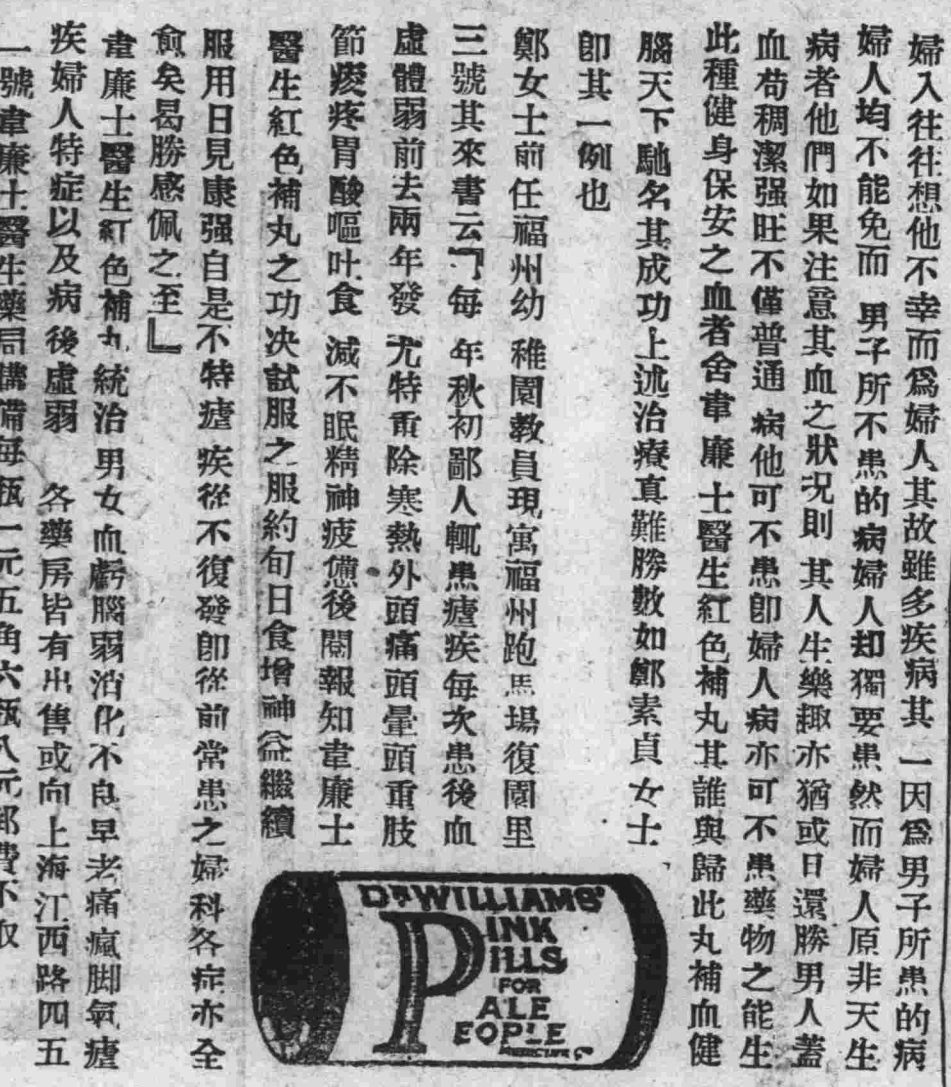 婦入往往想他不幸而爲婦人其故雖多疾病其一因爲男子所患的病
婦人均不能免而男子所不患的病婦人却獨要患然而婦人原非天生
病者他們如果注意其血之狀况則其人生樂趣亦猶或日還勝男人蓋
血苟稠潔强旺不僅普通病他可不患卽婦人病亦可不患藥物之能生
此種健身保安之血者舍韋廉士醫生紅色補丸其誰與歸此丸補血健
腦天下馳名其成功上述治療真難勝數如鄭素貞女士
卽其一例也
鄭女士前任福州幼稚園教員現寓福州跑馬場復園里
三號其來書云『每年秋初鄙人輒患瘧疾每次患後血
虛體弱前去兩年發尤特重除寒熱外頭痛頭暈頭重肢
節痠疼胃酸嘔吐食減不眠精神疲憊後閱報知韋廉士
醫生紅色補丸之功决試服之服約旬日食增神益繼續
服用日見康强自是不特瘧疾從不復發卽從前常患之婦科各症亦全
愈矣曷勝感佩之至』
韋廉士醫生紅色補丸統治男女血虧腦弱消化不良早老痛瘋脚氣瘧
疾婦人特症以及病後虛弱 各藥房皆有出售或向上海江西路四五
一號韋廉士醫生藥局購備每瓶一元五角六瓶八元郵費不取
DR WILLIAMS'
PINK
PILLS
FOR
PALE
PEOPLE
MEDICINE Co